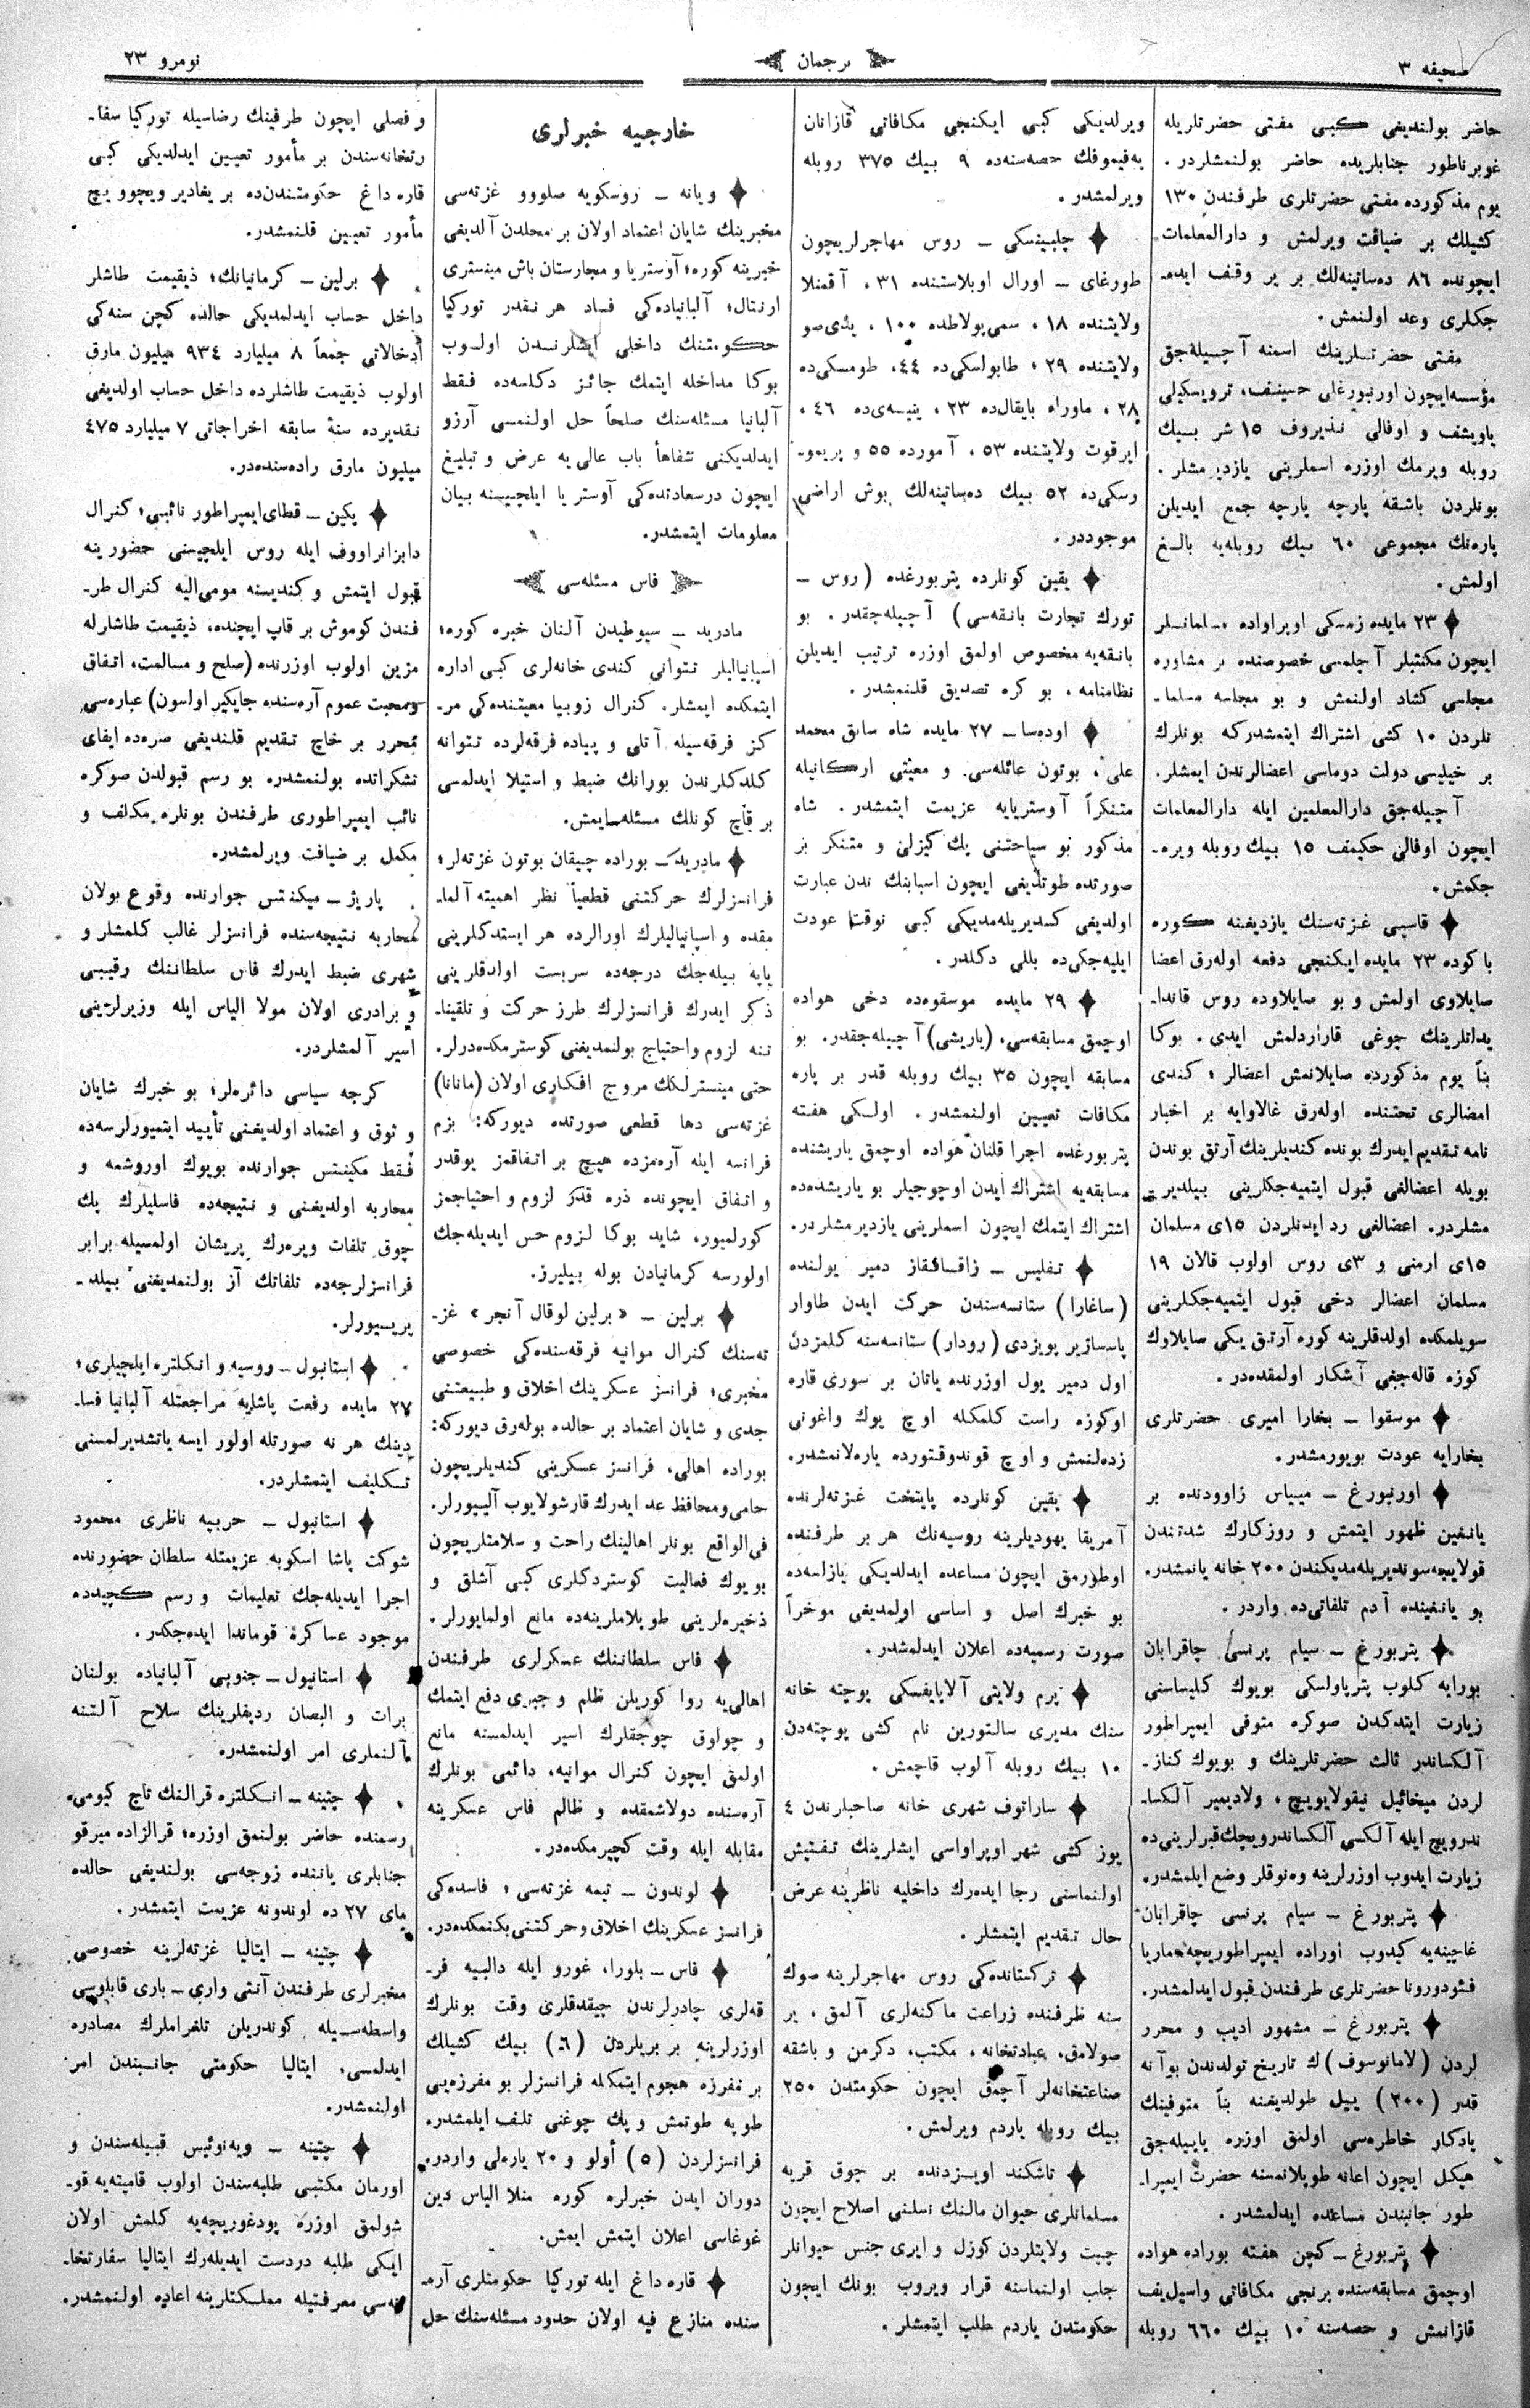 صحیفه ٣
ترجمان
نومرو ٢٣
حاضر بولندیغی كبی مفتی حضرتلریله
غوبرناطور جنابلریده حاضر بولنمشلردر.
یوم مذكورده مفتی حضرتلری طرفندن ١٣٠
كشیلك بر ضیافت ویرلمش و دارالمعلمات
ایچونده ٨٦ ده‌ساتینه‌لك بر یر وقف ایده‌ـ
جكلری وعد اولنمش.
مفتی حضرتلرینك اسمنه آچیله‌جق
مؤسسه‌ایچون اورنبورغلی حسینف، ترویسكیلی
یاویشف و اوفالی نذیروف ١٥ شر بیك
روبله ویرمك اوزره اسملرینی یازدیرمشلر.
بونلردن باشقه پارچه پارچه جمع ایدیلن
پاره‌نك مجموعی ٦٠ بیك روبله‌یه بالغ
اولمش.
٢٣ مایده زمسكی اوپراواده مسلمانلر
ایچون مكتبلر آچلمسی خصوصنده بر مشاوره
مجلسی كشاد اولنمش و بو مجلسه مسلماـ
نلردن ١٠ كشی اشتراك ایتمشدركه بونلرك
بر خیلیسی دولت دوماسی اعضالرندن ایمشلر.
آچیله‌جق دارالمعلمین ایله دارالمعلمات
ایچون اوفالی حكیمف ١٥ بیك روبله ویره‌ـ
جكمش.
قاسپی غزته‌سنك یازدیغنه كوره
باكوده ٢٣ مایده ایكنجی دفعه اوله‌رق اعضا
صایلاوی اولمش و بو صایلاوده روس قانداـ
یداتلرینك چوغی قارارلمش ایدی. بوكا
بناً یوم مذكورده صایلانمش اعضالر؛ كندی
امضالری تحتنده اوله‌رق غالاوایه بر اخبار
نامه تقدیم ایدرك بونده كندیلرینك آرتق بوندن
بویله اعضالغی قبول ایتمیه‌جكلرینی بیلدیرـ
مشلردر. اعضالغی رد ایدنلردن ١٥ی مسلمان
١٥ی ارمنی و ٣ی روس اولوب قالان ١٩
مسلمان اعضالر دخی قبول ایتمیه‌جكلرینی
سویلمكده اولدقلرینه كوره آرتق یكی صایلاوك
كوزه قاله‌جغی آشكار اولمقده‌در.
موسقوا ـ بخارا امیری حضرتلری
بخارایه عودت بویورمشدر.
اورنبورغ ـ میاس زاوودنده بر
یانغین ظهور ایتمش و روزكارك شدتندن
قولایجه‌سوندیریله‌مدیكندن ٢٠٠ خانه یانمشدر.
بو یانغینده آدم تلفاتی‌ده واردر.
پتربورغ ـ سیام پرنسی چاقرابان
بورایه كلوب پترپاولسكی بویوك كلیساسنی
زیارت ایتدكدن صوكره متوفی ایمپراطور
آلكساندر ثالث حضرتلرینك و بویوك كنازـ
لردن میخائیل نیقولایویچ، ولادیمیر آلكساـ
ندرویچ ایله آلكسی آلكساندرویچك قبرلرینی‌ده
زیارت ایدوب اوزرلرینه وه‌نوقلر وضع ایلمشدر.
پتربورغ ـ سیام پرنسی چاقرابان
غاچینه‌یه كیدوب اوراده ایمپراطوریچه ماریا
فئودورونا حضرتلری طرفندن قبول ایدلمشدر.
پتربورغ ـ مشهور ادیب و محرر
لردن (لامانوسوف)ك تاریخ تولدندن بوآنه
قدر (٢٠٠) ییل طولدیغنه بناً متوفینك
یادكار خاطره‌سی اولمق اوزره یاپیله‌جق
هیكل ایچون اعانه طوپلانمسنه حضرت ایمپراـ
طور جانبندن مساعده ایدلمشدر.
پتربورغ ـ كچن هفته بوراده هواده
اوچمق مسابقه‌سنده برنجی مكافاتی واسیل‌یف
قازانمش و حصه‌سنه ١٠ بیك ٦٦٠ روبله
ویرلدیكی كبی ایكنجی مكافاتی قازانان
یه‌فیموفك حصه‌سنه‌ده ٩ بیك ٣٧٥ روبله
ویرلمشدر.
چلیبینسكی ـ روس مهاجرلریچون
طورغای ـ اورال اوبلاستنده ٣١، آقمنلا
ولایتنده ١٨، سمی‌پولاطده ١٠٠، یدی‌صو
ولایتنده ٢٩، طابولسكی‌ده ٤٤، طومسكی‌ده
٢٨، ماوراء بایقال‌ده ٢٣، ینیسه‌ی‌ده ٤٦،
ایرقوت ولایتنده ٥٣، آمورده ٥٥ و پریموـ
رسكی‌ده ٥٢ بیك ده‌ساتینه‌لك بوش اراضی
موجوددر.
یقین كونلرده پتربورغده (روس ـ
تورك تجارت بانقه‌سی) آچیله‌جقدر. بو
بانقه‌یه مخصوص اولمق اوزره ترتیب ایدیلن
نظامنامه، بو كره تصدیق قلنمشدر.
اوده‌ساـ ٢٧ مایده شاه سابق محمد
علی، بوتون عائله‌سی و معیتی اركانیله
متنكراً آوستریایه عزیمت ایتمشدر. شاه
مذكور بو سیاحتنی پك كیزلی و متنكر بر
صورتده طوتدیغی ایچون اسبابنك ندن عبارت
اولدیغی كسدیریله‌مدیكی كبی نوقت عودت
ایلیه‌جكی‌ده بللی دكلدر.
٢٩ مایده موسقوه‌ده دخی هواده
اوچمق مسابقه‌سی، (یاریشی) آچیله‌جقدر. بو
مسابقه ایچون ٣٥ بیك روبله قدر بر پاره
مكافات تعیین اولنمشدر. اولكی هفته
پتربورغده اجرا قلنان هواده اوچمق یاریشنده
مسابقه‌یه اشتراك ایدن اوچوجیلر بو یاریشده‌ده
اشتراك ایتمك ایچون اسملرینی یازدیرمشلردر.
تفلیس ـ زاقافقاز دمیر یولنده
(ساغارا) ستانسه‌سندن حركت ایدن طاوار
پاسساژیر پویزدی (رودار) ستانسه‌سنه كلمزدن
اول دمیر یول اوزرنده یاتان بر سوری قاره
اوكوزه راست كلمكله اوچ یوك واغونی
زده‌لنمش و اوچ قوندوقتورده یاره‌لانمشدر.
یقین كونلرده پایتخت غزته‌لرنده
آمریقا یهودیلرینه روسیه‌نك هر بر طرفنده
اوطورمق ایچون مساعده ایدلدیكی یازلسه‌ده
بو خبرك اصل و اساسی اولمدیغی موخراً
صورت رسمیه‌ده اعلان ایدلمشدر.
پرم ولایتی آلاپایفسكی پوچته خانه
سنك مدیری سالتورین نام كشی پوچته‌دن
١٠ بیك روبله آلوب قاچمش.
ساراتوف شهری خانه صاحبلرندن ٤
یوز كشی شهر اوپراواسی ایشلرینك تفتیش
اولنماسنی رجا ایده‌رك داخلیه ناظرینه عرض
حال تقدیم ایتمشلر.
تركستانده‌كی روس مهاجرلرینه صوك
سنه ظرفنده زراعت ماكنه‌لری آلمق، یر
صولامق، عبادتخانه، مكتب، دكرمن و باشقه
صناعتخانه‌لر آچمق ایچون حكومتدن ٢٥٠
بیك روبله یاردم ویرلمش.
تاشكند اویزدنده بر چوق قریه
مسلمانلری حیوان مالنك نسلنی اصلاح ایچون
چیت ولایتلردن كوزل و ایری جنس حیوانلر
جلب اولنماسنه قرار ویروب بونك ایچون
حكومتدن یاردم طلب ایتمشلر.
خارجیه خبرلری
ویانه ـ روسكویه صلووو غزته‌سی
مخبرینك شایان اعتماد اولان بر محلدن آلدیغی
خبرینه كوره؛ آوستریا و مجارستان باش مینستری
ارنتال؛ آلبانیاده‌كی فساد هر نقدر توركیا
حكومتنك داخلی ایشلرندن اولوب
بوكا مداخله ایتمك جائز دكلسه‌ده فقط
آلبانیا مسئله‌سنك صلحاً حل اولنمسی آرزو
ایدلدیكنی شفاهاً باب عالی‌یه عرض و تبلیغ
ایچون درسعادتده‌كی آوستریا ایلچیسنه بیان
معلومات ایتمشدر.
فاس مسئله‌سی
مادرید ـ سیوطیدن آلنان خبره كوره؛
اسپانیالیلر تتوانی كندی خانه‌لری كبی اداره
ایتمكده ایمشلر. كنرال زوبیا معیتنده‌كی مرـ
كز فرقه‌سیله آتلی و پیاده فرقه‌لرده تتوانه
كلدكلرندن بورانك ضبط و استیلا ایدلمسی
بر قاچ كونلك مسئله‌ایمش.
مادریدـ بوراده چیقان بوتون غزته‌لر؛
فرانسزلرك حركتنی قطعیاً نظر اهمیته آلماـ
مقده و اسپانیالیلرك اورالرده هر ایستدكلرینی
یاپه بیله‌جك درجه‌ده سربست اولدقلرینی
ذكر ایدرك فرانسزلرك طرز حركت و تلقیناـ
تنه لزوم واحتیاج بولنمدیغنی كوسترمكده‌درلر.
حتی مینسترلكك مروج افكاری اولان (مانانا)
غزته‌سی دها قطعی صورتده دیوركه: بزم
فرانسه ایله آره‌مزده هیچ بر اتفاقمز یوقدر
و اتفاق ایچونده ذره قدر لزوم و احتیاجمز
كورلمیور، شاید بوكا لزوم حس ایدیله‌جك
اولورسه كرمانیادن بوله بیلیرز.
برلین ـ «برلین لوقال آنجر» غزـ
ته‌سنك كنرال موانیه فرقه‌سنده‌كی خصوصی
مخبری؛ فرانسز عسكرینك اخلاق و طبیعتنی
جدی و شایان اعتماد بر حالده بوله‌رق دیوركه:
بوراده اهالی، فرانسز عسكرینی كندیلریچون
حامی‌ومحافظ عد ایدرك قارشولایوب آلییورلر.
فی‌الواقع بونلر اهالینك راحت و سلامتلریچون
بویوك فعالیت كوستردكلری كبی آشلق و
ذخیره‌لرینی طوپلاملرینه‌ده مانع اولمایورلر.
فاس سلطاننك عسكرلری طرفندن
اهالی‌یه روا كوریلن ظلم و جبری دفع ایتمك
و چولوق چوجقلرك اسیر ایدلمسنه مانع
اولمق ایچون كنرال موانیه، دائمی بونلرك
آره‌سنده دولاشمقده و ظالم فاس عسكرینه
مقابله ایله وقت كچیرمكده‌در.
لوندون ـ تیمه غزته‌سی؛ فاسده‌كی
فرانسز عسكرینك اخلاق‌وحركتنی‌بكنمكده‌در.
فاس ـ بلورا، غورو ایله دالبیه فرـ
قه‌لری چادرلرندن چیقدقلری وقت بونلرك
اوزرلرینه بربریلردن (٦) بیك كشیلك
بر مفرزه هجوم ایتمكله فرانسزلر بو مفرزه‌یی
طوپه طوتمش و پك چوغنی تلف ایلمشدر.
فرانسزلردن (٥) أولو و ٢٠ یاره‌لی واردر.
دوران ایدن خبرلره كوره منلا الیاس دین
غوغاسی اعلان ایتمش ایمش.
قاره داغ ایله توركیا حكومتلری آره‌ـ
سنده منازع فیه اولان حدود مسئله‌سنك حل
و فصلی ایچون طرفینك رضاسیله توركیا سفاـ
رتخانه‌سندن بر مأمور تعیین ایدلدیكی كبی
قاره داغ حكومتندن‌ده بریغادیر ویچوویچ
مأمور تعیین قلنمشدر.
برلین ـ كرمانیانك؛ ذیقیمت طاشلر
داخل حساب ایدلمدیكی حالده كچن سنه‌كی
ادخالاتی جمعاً ٨ میلیارد ٩٣٤ میلیون مارق
اولوب ذیقیمت طاشلرده داخل حساب اولدیغی
تقدیرده سنهٔ سابقه اخراجاتی ٧ میلیارد ٤٧٥
میلیون مارق راده‌سنده‌در.
پكین ـ قطای‌ایمپراطور نائبی؛ كنرال
دابزانراووف ایله روس ایلچیسنی حضورینه
قبول ایتمش و كندیسنه مومی‌الیه كنرال طرـ
فندن كوموش بر قاپ ایچنده، ذیقیمت طاشلرله
مزین اولوب اوزرنده (صلح و مسالمت، اتفاق
ومحبت عموم آره‌سنده جایكیر اولسون) عباره‌سی
محرر بر خاچ تقدیم قلندیغی صره‌ده ایفای
تشكراتده بولنمشدر. بو رسم قبولدن صوكره
نائب ایمپراطوری طرفندن بونلره مكلف و
مكمل بر ضیافت ویرلمشدر.
پاریژ ـ میكنتس جوارنده وقوع بولان
محاربه نتیجه‌سنده فرانسزلر غالب كلمشلر و
شهری ضبط ایدرك فاس سلطاننك رقیبی
و برادری اولان مولا الیاس ایله وزیرلرینی
اسیر آلمشلردر.
كرچه سیاسی دائره‌لر؛ بو خبرك شایان
وثوق و اعتماد اولدیغنی تأیید ایتمیورلرسه‌ده
فقط مكینتس جوارنده بویوك اوروشمه و
محاربه اولدیغنی و نتیجه‌ده فاسلیلرك پك
چوق تلفات ویره‌رك پریشان اولمسیله برابر
فرانسزلرجه‌ده تلفاتك آز بولنمدیغنی بیلدـ
یرییورلر.
استانبول ـ روسیه و انكلتره ایلچیلری؛
٢٧ مایده رفعت پاشایه مراجعتله آلبانیا فساـ
دینك هر نه صورتله اولور ایسه یاتشدیرلمسنی
تكلیف ایتمشلردر.
استانبول ـ حربیه ناظری محمود
شوكت پاشا اسكوبه عزیمتله سلطان حضورنده
اجرا ایدیله‌جك تعلیمات و رسم كچیدده
موجود عساكرهٔ قوماندا ایده‌جكدر.
استانبول ـ جنوبی آلبانیاده بولنان
برات و البصان ردیفلرینك سلاح آلتنه
آلنملری امر اولنمشدر.
چتینه ـ انكلتره قرالنك تاج كیومی
رسمنده حاضر بولنمق اوزره؛ قرالزاده میرقو
جنابلری یاننده زوجه‌سی بولندیغی حالده
مای ٢٧ ده لوندونه عزیمت ایتمشدر.
چتینه ـ ایتالیا غزته‌لرینه خصوصی
مخبرلری طرفندن آنتی واری ـ باری قابلوسی
واسطه‌سیله كوندریلن تلغراملرك مصادره
ایدلمسی، ایتالیا حكومتی جانبندن امر
اولنمشدر.
چتینه ـ ویه‌نوئیس قبیله‌سندن و
اورمان مكتبی طلبه‌سندن اولوب قامیته‌یه قوـ
شولمق اوزره پودغوریچه‌یه كلمش اولان
ایكی طلبه دردست ایدیله‌رك ایتالیا سفارتخاـ
نه‌سی معرفتیله مملكتلرینه اعاده اولنمشدر.